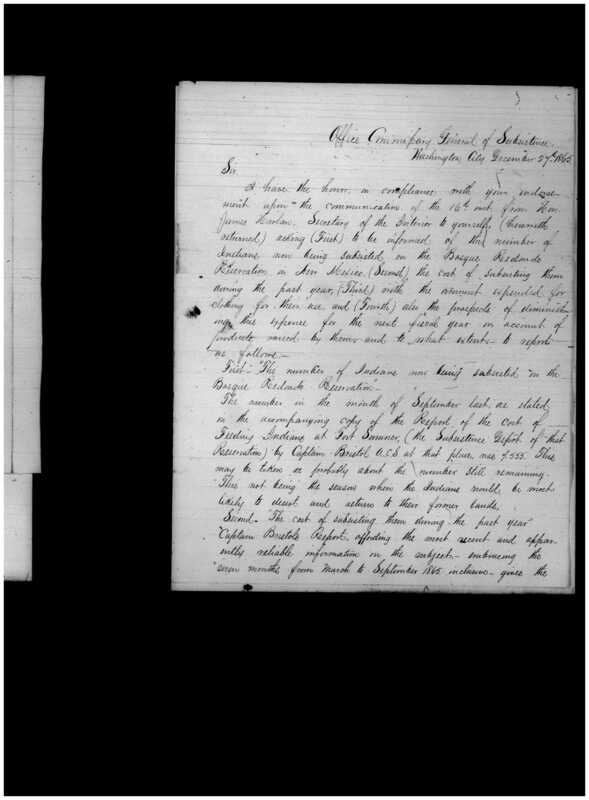 Office Commissary General of Subsistence.
Washington City December 27th 1865
Sir
I have the honor, in compliance with your indorse-
ment upon the communication of the 16th inst, from Hon.
James Harlan, Secretary of the Interior to yourself, (herewith
returned,) asking (First) to be informed of the number of
Indians now being subsisted on the Bosque Redondo
Reservation in New Mexico. (Second), the cost of subsisting them
during the past year, (Third) with the amount expended for
clothing for their use and (Fourth) also the prospects of diminish-
ing this expense for the next fiscal year on account of
products raised by them and to what extent to report
as follows.-
First- "The number of Indians now being subsisted on the
Bosque Redondo Reservation"-
The number in the month of September last, as stated
in the accompanying copy of the Report of the cost of
Feeding Indians at Fort Sumner, (the Subsistence Depot of that
Reservation) by Captain Bristol A.C.S. at that place, was 7,555. This
may be taken as probably about the number still remaining.
This not being the season when the Indians would be most
likely to desert and return to their former lands.
Second- "The cost of subsisting them during the past year"
Captain Bristol's Report, affording the most recent and appar-
ently reliable information on the subject- embracing the
seven months, from March to September 1865 inclusive- gives the